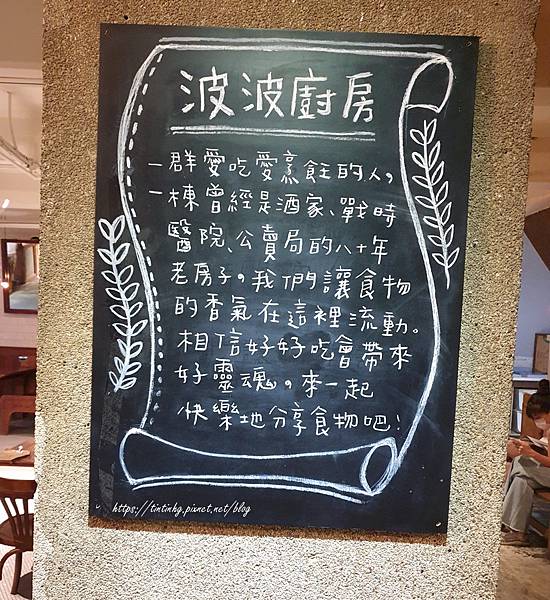 波波廚房
一群愛吃愛烹飪的人，
一棟曾經是酒家、戰時
醫院、公賣局的八十年
老房子。我們讓食物
的香氣在這裡流動。
相信好好吃會帶來
好靈魂。來一起
快樂地分享食物吧！
https://tintinhg.pixnet.net/blog